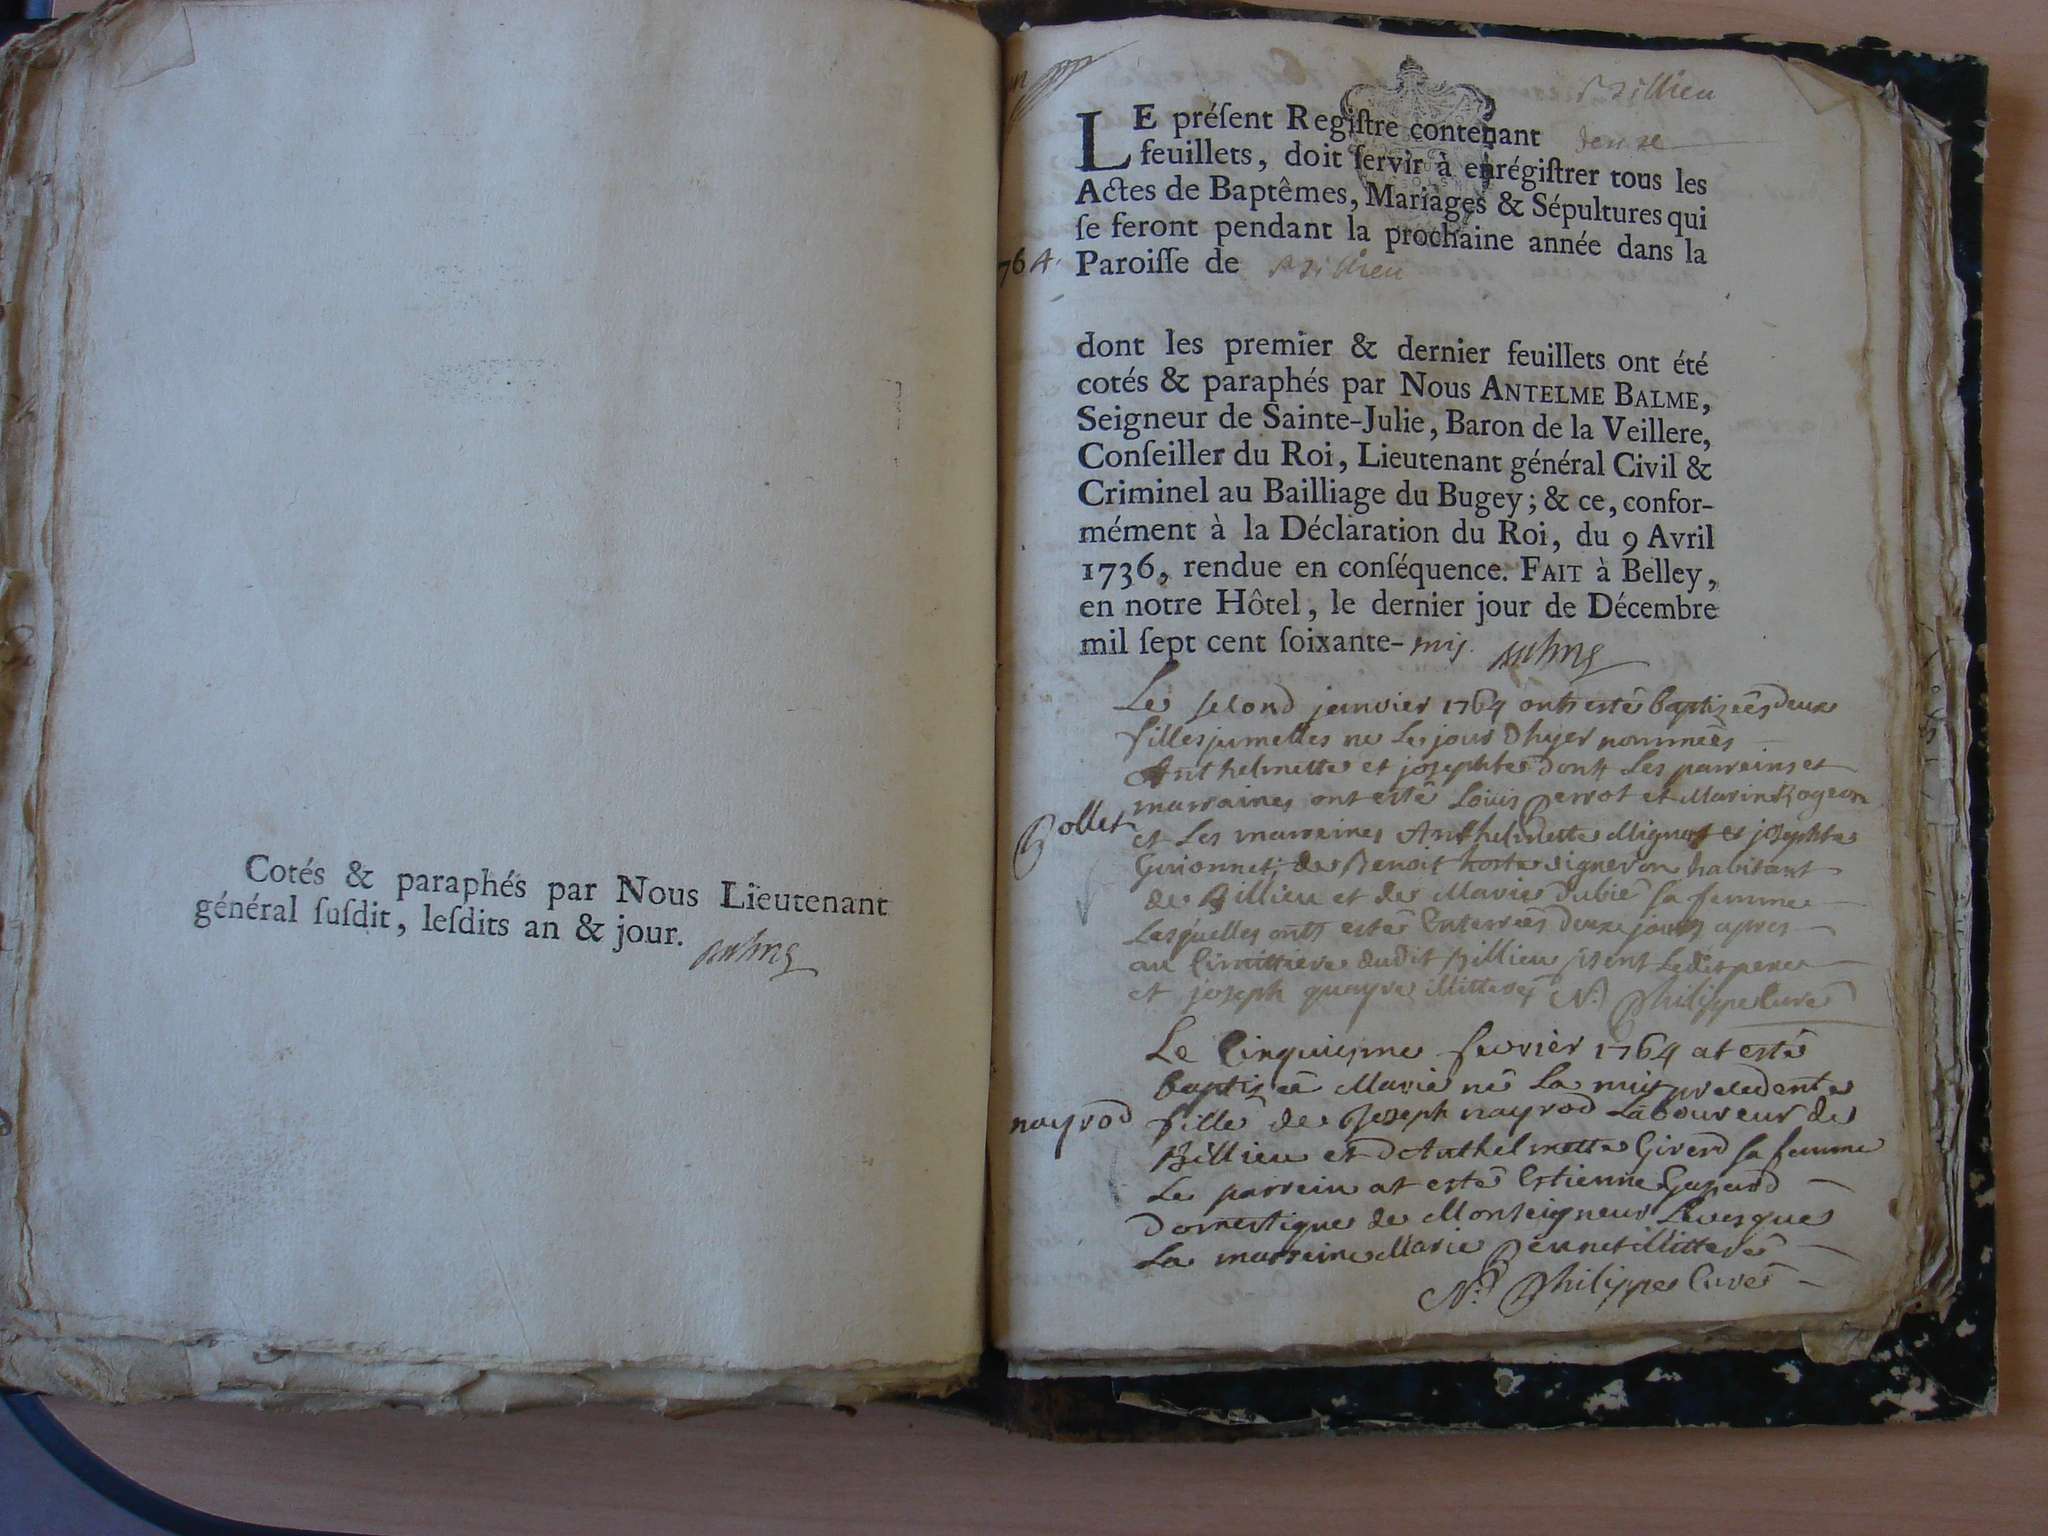 Cotés & paraphés par Nous Lieutenant
général ſuſdit, leſdits an & jour.
Billieu
LE préſent Regiſtre contenant deuze
feuillets, doit ſervir à enrégiſtrer tous les
Actes de Baptêmes, Mariages & Sépultures qui
ſe feront pendant la prochaine année dans la
764. Paroiſſe de Billieu
dont les premier & dernier feuillets ont été
cotés & paraphés par Nous ANTELME BALME,
Seigneur de Sainte-Julie, Baron de la Veillere,
Conſeiller du Roi, Lieutenant général Civil &
Criminel au Bailliage du Bugey; & ce, confor-
mément à la Déclaration du Roi, du 9 Avril
1736, rendue en conſéquence. FAIT à Belley,
en notre Hôtel, le dernier jour de Décembre
mil ſept cent ſoixante-
Le second janvier 1764 onts esté baptizeés deux
filles jumelles ne le jour Dhyer nommeés
Anthelmette et josephte dont Les parreins et
marraines ont esté Louis Perrot et Marin Rogeon
et Les marreines Anthelmette Mignot et josephte
Guionnet, de Benoit vigneron habitant
de Billieu et de Marie Dubié sa femme
Lesquelles onts estés Enterreés deux jours apres
au Cimittiere dudit Billieu Le dit pere
et joseph quayre illitterés N. Philippe Curé
Le Cinquiesme fevrier 1764 at esté
baptizeé Marie né La nuit precedente
nayrod fille de Joseph nayrod Laboureur de
Billieu et dAnthelmette Girerd sa femme
Le parrein at esté Estienne
Domestique de Monseigneur Levesque
La marreine Marie illitterés
N. Philippe Curé